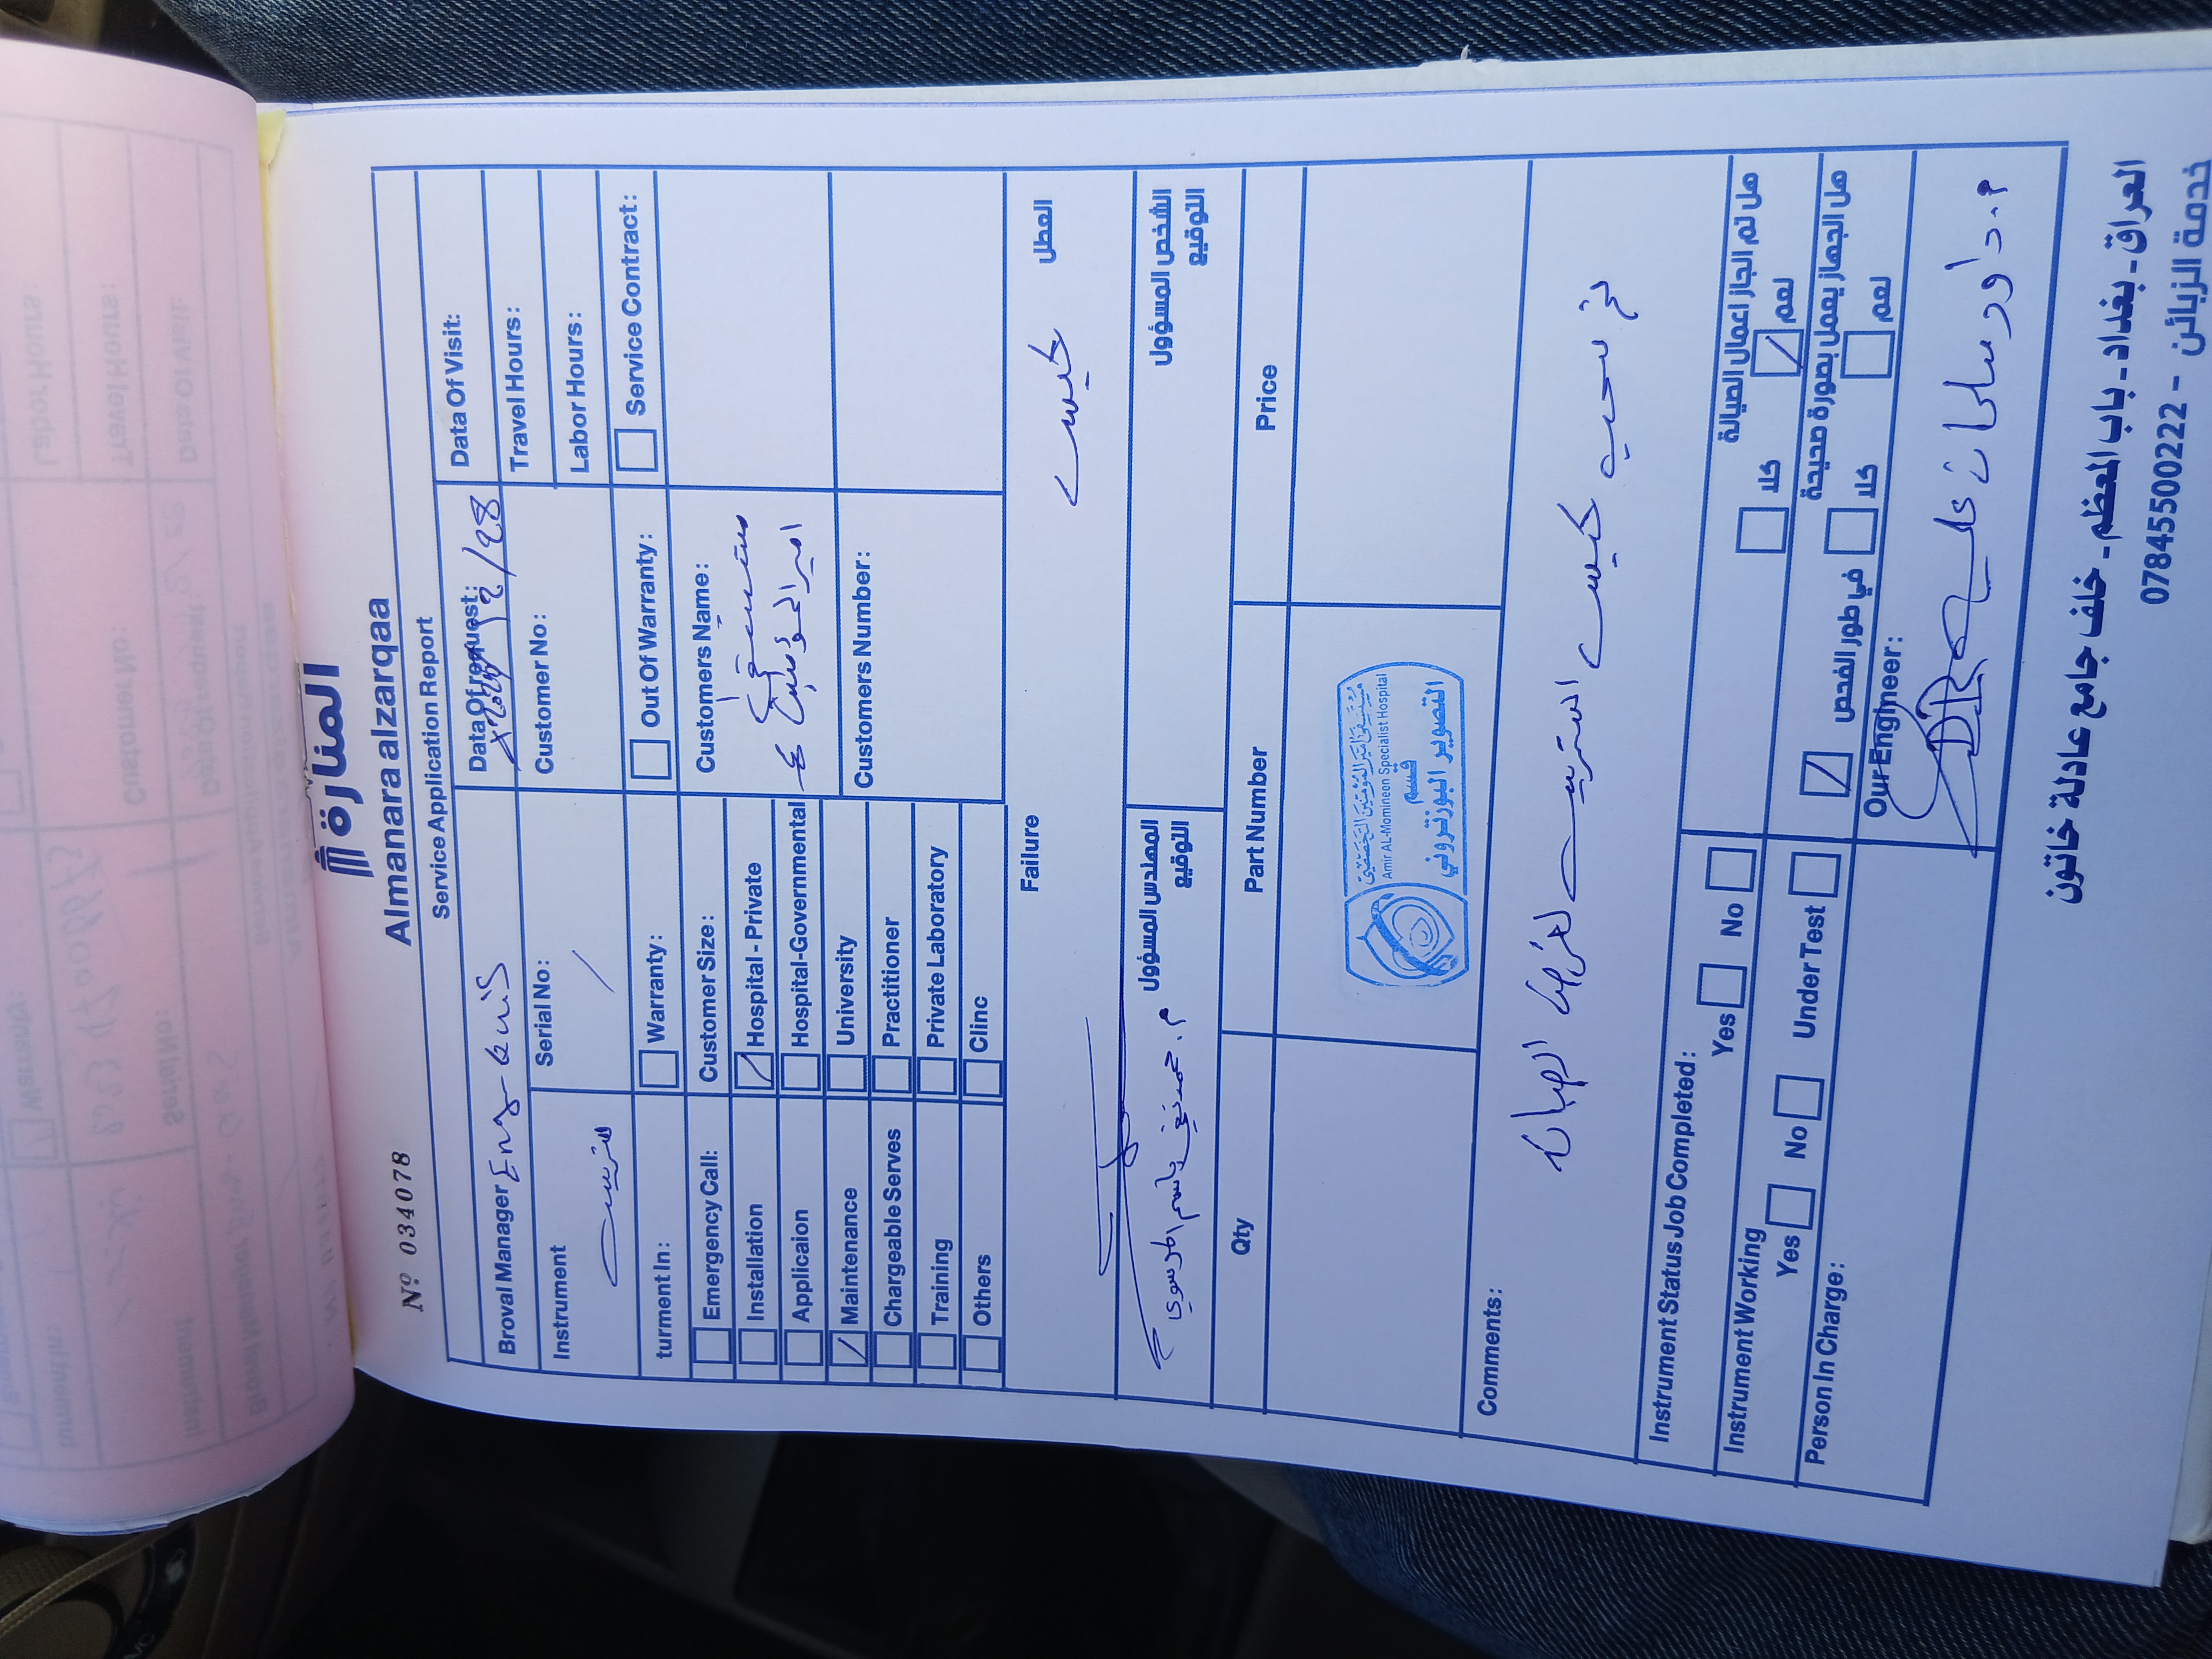 المنارة
Almanara alzarqaa
Nº 034078
Service Application Report
Broval Manager Eng. Qais
Data Of request:
2/28
Data Of Visit:
Instrument
Serial No: /
Customer No:
Travel Hours:
Labor Hours:
turment In:
Warranty:
Out Of Warranty:
Service Contract:
Emergency Call:
Installation
Applicaion
Maintenance
Chargeable Serves
Training
Others
Customer Size:
Hospital - Private
Hospital-Governmental
University
Practitioner
Private Laboratory
Clinc
Customers Name:
مستشفى
امير المؤمنين ع
Customers Number:
Failure
العطل
المهندس المسؤول
التوقيع
الشخص المسؤول
التوقيع
Qty
Part Number
Price
مستشفى امير المؤمنين التخصصي
Amir AL-Momineen Specialist Hospital
قسم
التصوير البوزتروني
Comments:
تم سحب كيس الستريت لغرض الصيانة
Instrument Status Job Completed:
Yes No
هل تم انجاز اعمال الصيانة
كلا نعم
Instrument Working
Yes No Under Test
هل الجهاز يعمل بصورة صحيحة
في طور الفحص كلا نعم
Person In Charge:
Our Engineer:
العراق - بغداد - باب المعظم - خلف جامع عادلة خاتون
خدمة الزبائن - 07845500222